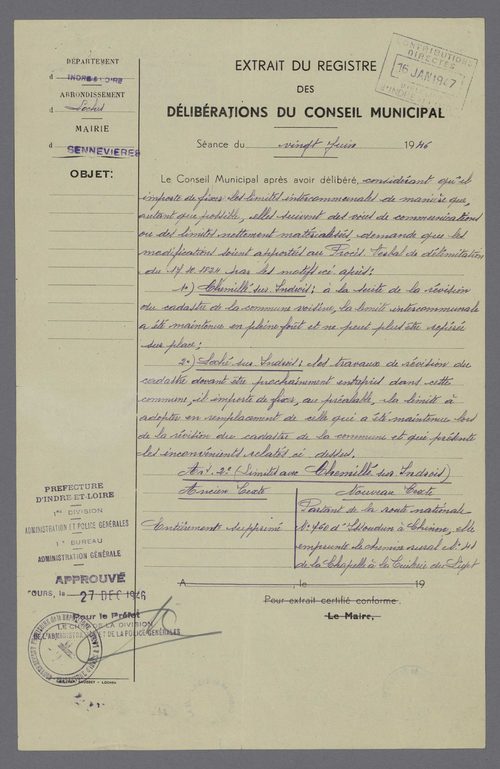 DÉPARTEMENT
d INDRE & LOIRE
ARRONDISSEMENT
d Loches
MAIRIE
d SENNEVIERES
OBJET:
CONTRIBUTIONS
DIRECTES
16 JAN 1947
D'INDRE
EXTRAIT DU REGISTRE
DES
DÉLIBÉRATIONS DU CONSEIL MUNICIPAL
Séance du vingt Juin 1946
Le Conseil Municipal après avoir délibéré, considérant qu'il
importe de fixer les limites intercommunales de manière que,
autant que possible, elles suivent des voies de communications
ou des limites nettement matérialisées demande que les
modifications soient apportées au Procès Verbal de délimitation
du 17 1824 par les motifs ici après:
1º) Chemillé sur Indrois: à la suite de la révision
du cadastre de la commune voisine, la limite intercommunale
a été maintenue en pleine forêt et ne peut plus être repérée
sur place;
2º) Loché sur Indrois: Les travaux de révision du
cadastre devant être prochainement entrepris dans cette
commune, il importe de fixer, au préalable, la limite à
adopter en remplacement de celle qui a été maintenue lors
de la révision du cadastre de la commune et qui présente
les inconvénients relatés ci dessus.
Art. 2º (Limites avec Chemillé sur Indrois)
Ancien Texte
Nouveau Texte
Entièrement supprimé
Partant de la route nationale
Nº 760 d'Issoudun à Chinon, elle
emprunte le chemin rural Nº 41
de la Chapelle à la Tuilerie du Liget
A , le 19
Pour extrait certifié conforme.
Le Maire,
PREFECTURE
D'INDRE-ET-LOIRE
1re DIVISION
ADMINISTRATION ET POLICE GÉNÉRALES
1er BUREAU
ADMINISTRATION GÉNÉRALE
APPROUVÉ
TOURS, le 27 DEC 1946
Pour le Préfet
LE CHEF DE LA DIVISION
DE L'ADMINISTRATION ET DE LA POLICE GÉNÉRALES
LOCHES